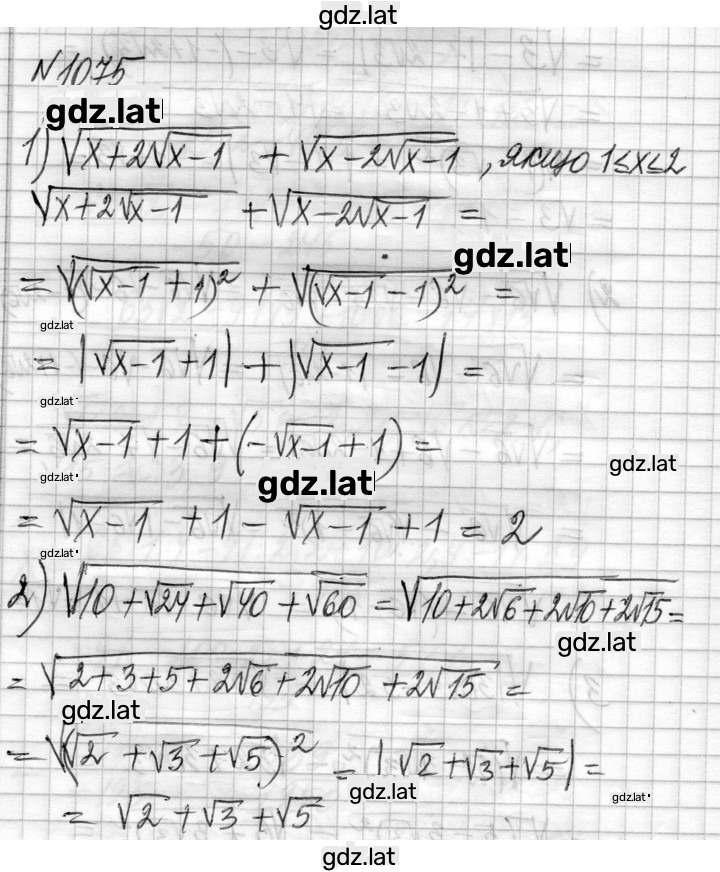 gdz.lat
N 1075
gdz.lat
1) √(x+2√(x-1)) + √(x-2√(x-1)), якщо 1≤x≤2
√(x+2√(x-1)) + √(x-2√(x-1)) =
gdz.lat
= √((√(x-1)+1)²) + √((√(x-1)-1)²) =
gdz.lat
= |√(x-1)+1| + |√(x-1)-1| =
gdz.lat
= √(x-1)+1+(-√(x-1)+1) =
gdz.lat
gdz.lat gdz.lat
= √(x-1) +1 - √(x-1) +1 = 2
gdz.lat
2) √(10+√24+√40+√60) = √(10+2√6+2√10+2√15) =
gdz.lat
= √(2+3+5+2√6+2√10+2√15) =
gdz.lat
= √((√2+√3+√5)²) = |√2+√3+√5| =
gdz.lat gdz.lat
= √2+√3+√5
gdz.lat